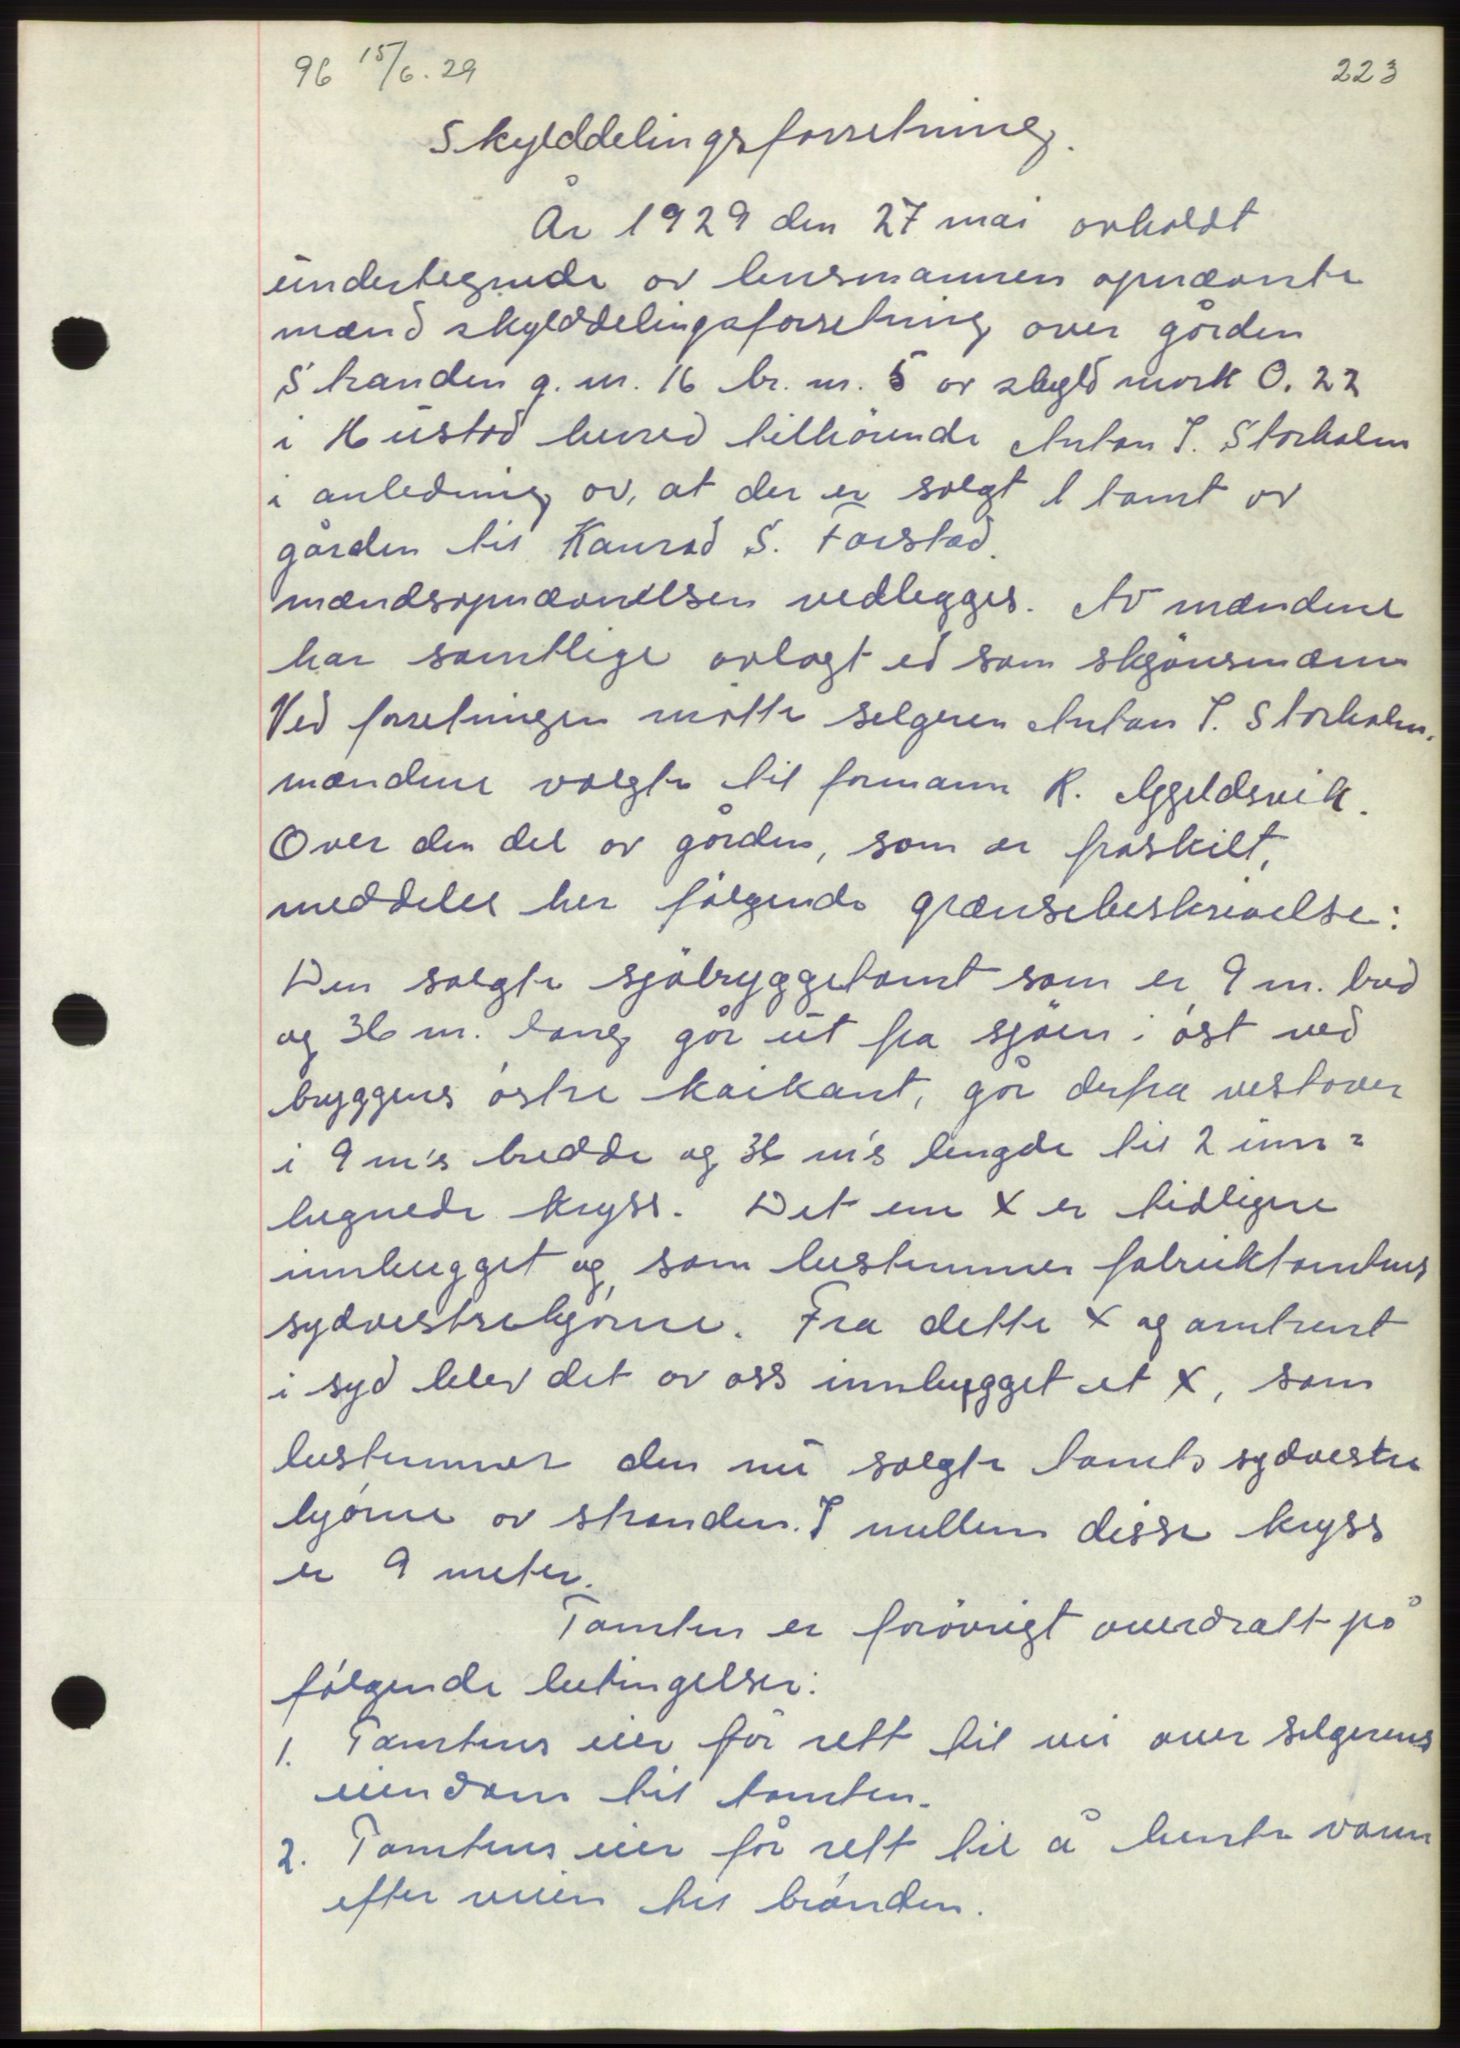 96 15/6.29 223
Skylddelingsforretning.
År 1929 den 27 mai avholdt
undertegnede av lensmannen opnævnte
mænd skylddelingsforretning over gården
Stranden g.nr. 16 br.nr. 5 av skyld mark 0.22
i Hustad herred tilhörende Anton J. Storholm
i anledning av, at der er solgt 1 tomt av
gården til Konrad S. Farstad.
mændsopnævnelsen vedlegges. Av mændene
har samtlige avlagt ed som skjönsmænn
Ved forretningen mötte selgeren Anton J. Storholm.
mændene valgte til formann K.
Over den del av gården, som er fraskilt,
meddeles her fölgende grænsebeskrivelse:
Den solgte sjöbryggetomt som er 9 m. bred
og 36 m. lang går ut fra sjöen i öst ved
bryggens östre kaikant, går derfra vestover
i 9 m's bredde og 36 m's lengde til 2 inn=
hugnede kryss. Det ene X er tidligere
innhugget og som bestemmer fabriktomtens
sydvestrehjörne. Fra dette X og omtrent
i syd blev det av oss innhugget et X, som
bestemmer den nu solgte tomts sydvestre
hjörne av stranden. I mellem disse kryss
er 9 meter.
Tomten er forövrigt overdratt på
fölgende betingelser:
1. Tomtens eier får rett til vei over selgerens
eiendom til tomten.
2. Tomtens eier får rett til å hente vann
efter veien til brönden.